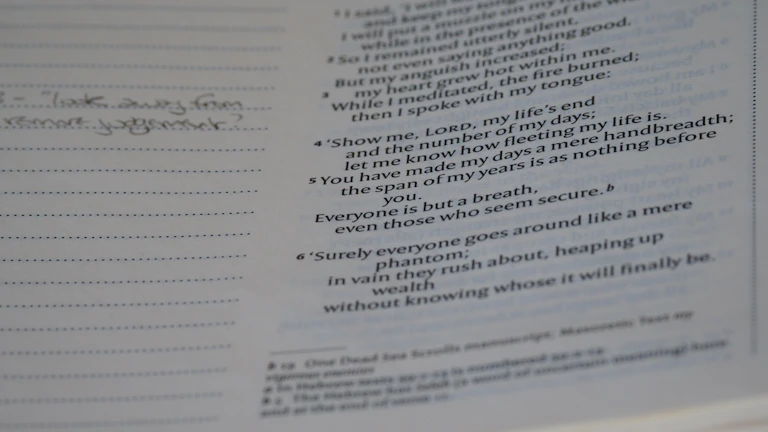 "look away from
remove judgement?
¹ I said, 'I will
and keep my tongue
I will put a muzzle on my
while in the presence of the
² So I remained utterly silent,
not even saying anything good.
But my anguish increased;
³ my heart grew hot within me.
While I meditated, the fire burned;
then I spoke with my tongue:
⁴ 'Show me, LORD, my life's end
and the number of my days;
let me know how fleeting my life is.
⁵ You have made my days a mere handbreadth;
the span of my years is as nothing before
you.
Everyone is but a breath,
even those who seem secure.ᵇ
⁶ 'Surely everyone goes around like a mere
phantom;
in vain they rush about, heaping up
wealth
without knowing whose it will finally be.
One Dead Sea Scrolls manuscript; Masoretic Text my
vigorous enemies
In Hebrew texts 39:1-13 is numbered 39:2-14.
The Hebrew has Selah (a word of uncertain meaning) here
and at the end of verse 11.